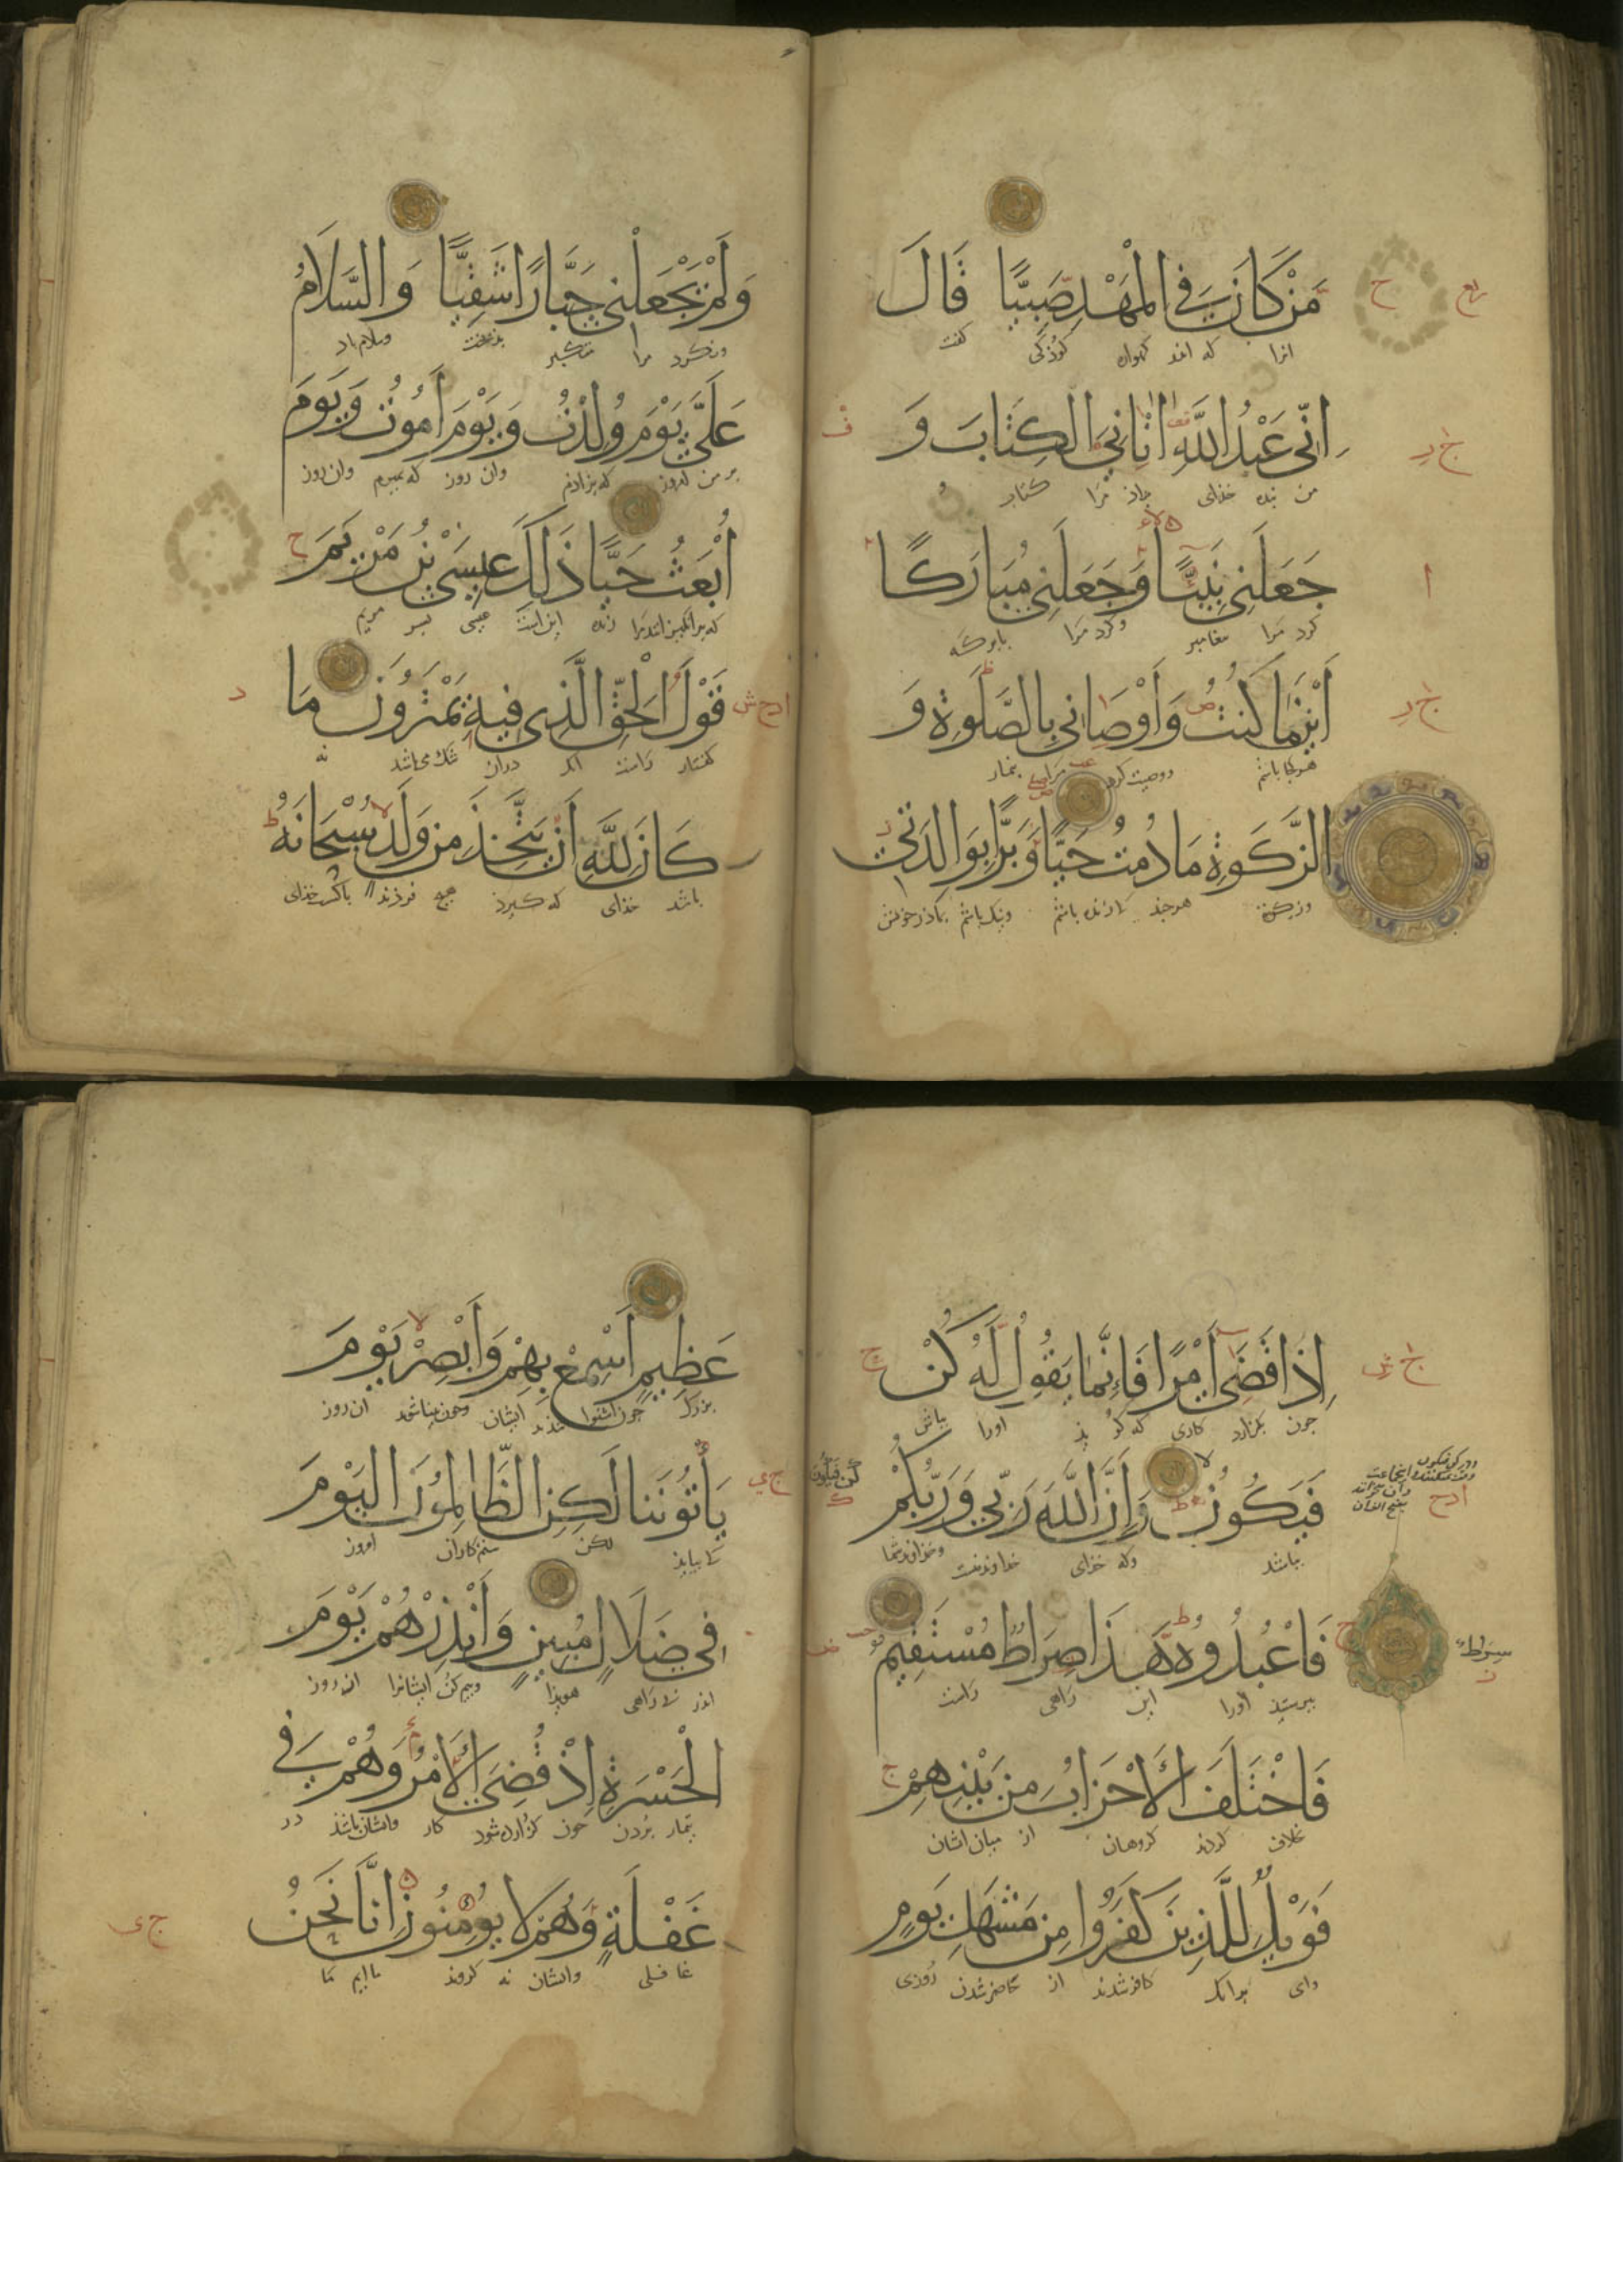 مَنْ كَانَ فِي الْمَهْدِ صَبِيًّا قَالَ
انرا که اندر کهواره کوذکی کفت
اِنِّي عَبْدُ اللَّهِ اٰتَانِيَ الْكِتَابَ وَ
من بنده خذای بداذ مرا کتاب و
جَعَلَنِي نَبِيًّا وَجَعَلَنِي مُبَارَكًا
کرد مرا پیغامبر وکرد مرا بابرکه
أَيْنَمَا كُنْتُ وَأَوْصَانِي بِالصَّلٰوةِ وَ
هرکجا باشم ووصیت کرد مرا بنماز
الزَّكٰوةِ مَا دُمْتُ حَيًّا وَبَرًّا بِوَالِدَتِي
هرچند تا زنده باشم ونیک باشم بماذر خویش
وَلَمْ يَجْعَلْنِي جَبَّارًا شَقِيًّا وَالسَّلَامُ
ونکرد مرا متکبر بذبخت وسلام باد
عَلَيَّ يَوْمَ وُلِدْتُ وَيَوْمَ أَمُوتُ وَيَوْمَ
بر من که بزاذم وان روز که بمیرم وان روز
أُبْعَثُ حَيًّا ذَلِكَ عِيسَى بْنُ مَرْيَمَ
که برانکیزانند مرا زنده این است عیسی پسر مریم
قَوْلَ الْحَقِّ الَّذِي فِيهِ يَمْتَرُونَ مَا
کفتار راست انک دران شک می باشد نه
كَانَ لِلَّهِ أَنْ يَتَّخِذَ مِنْ وَلَدٍ سُبْحَانَهُ
باشد خذای که کیرذ هیچ فرزند پاکست خذای
اِذَا قَضَى أَمْرًا فَإِنَّمَا يَقُولُ لَهُ كُنْ
چون بکزارد کاری که کویذ اورا بباش
فَيَكُونُ وَإِنَّ اللَّهَ رَبِّي وَرَبُّكُمْ
بباشد وکه خذای خداوند منست وخداوند شما
فَاعْبُدُوهُ هَذَا صِرَاطٌ مُسْتَقِيمٌ
بپرستیذ اورا این راهی راست
فَاخْتَلَفَ الْأَحْزَابُ مِنْ بَيْنِهِمْ
خلاف کردند کروهان از میان ایشان
فَوَيْلٌ لِلَّذِينَ كَفَرُوا مِنْ مَشْهَدِ يَوْمٍ
وای برانک کافر شدند از حاضر شدن روزی
عَظِيمٍ أَسْمِعْ بِهِمْ وَأَبْصِرْ يَوْمَ
بزرک چون شنوا ایشان وچون بینا شوند ان روز
يَأْتُونَنَا لَكِنِ الظَّالِمُونَ الْيَوْمَ
لکن ستم کاران امروز
فِي ضَلَالٍ مُبِينٍ وَأَنْذِرْهُمْ يَوْمَ
اندر بی راهی هویذا وبیم کن ایشانرا ان روز
الْحَسْرَةِ إِذْ قُضِيَ الْأَمْرُ وَهُمْ فِي
تیمار بردن چون کزارده شود کار وایشان باشند در
غَفْلَةٍ وَهُمْ لَا يُؤْمِنُونَ إِنَّا نَحْنُ
غافلی وایشان نه کروند ماایم ما